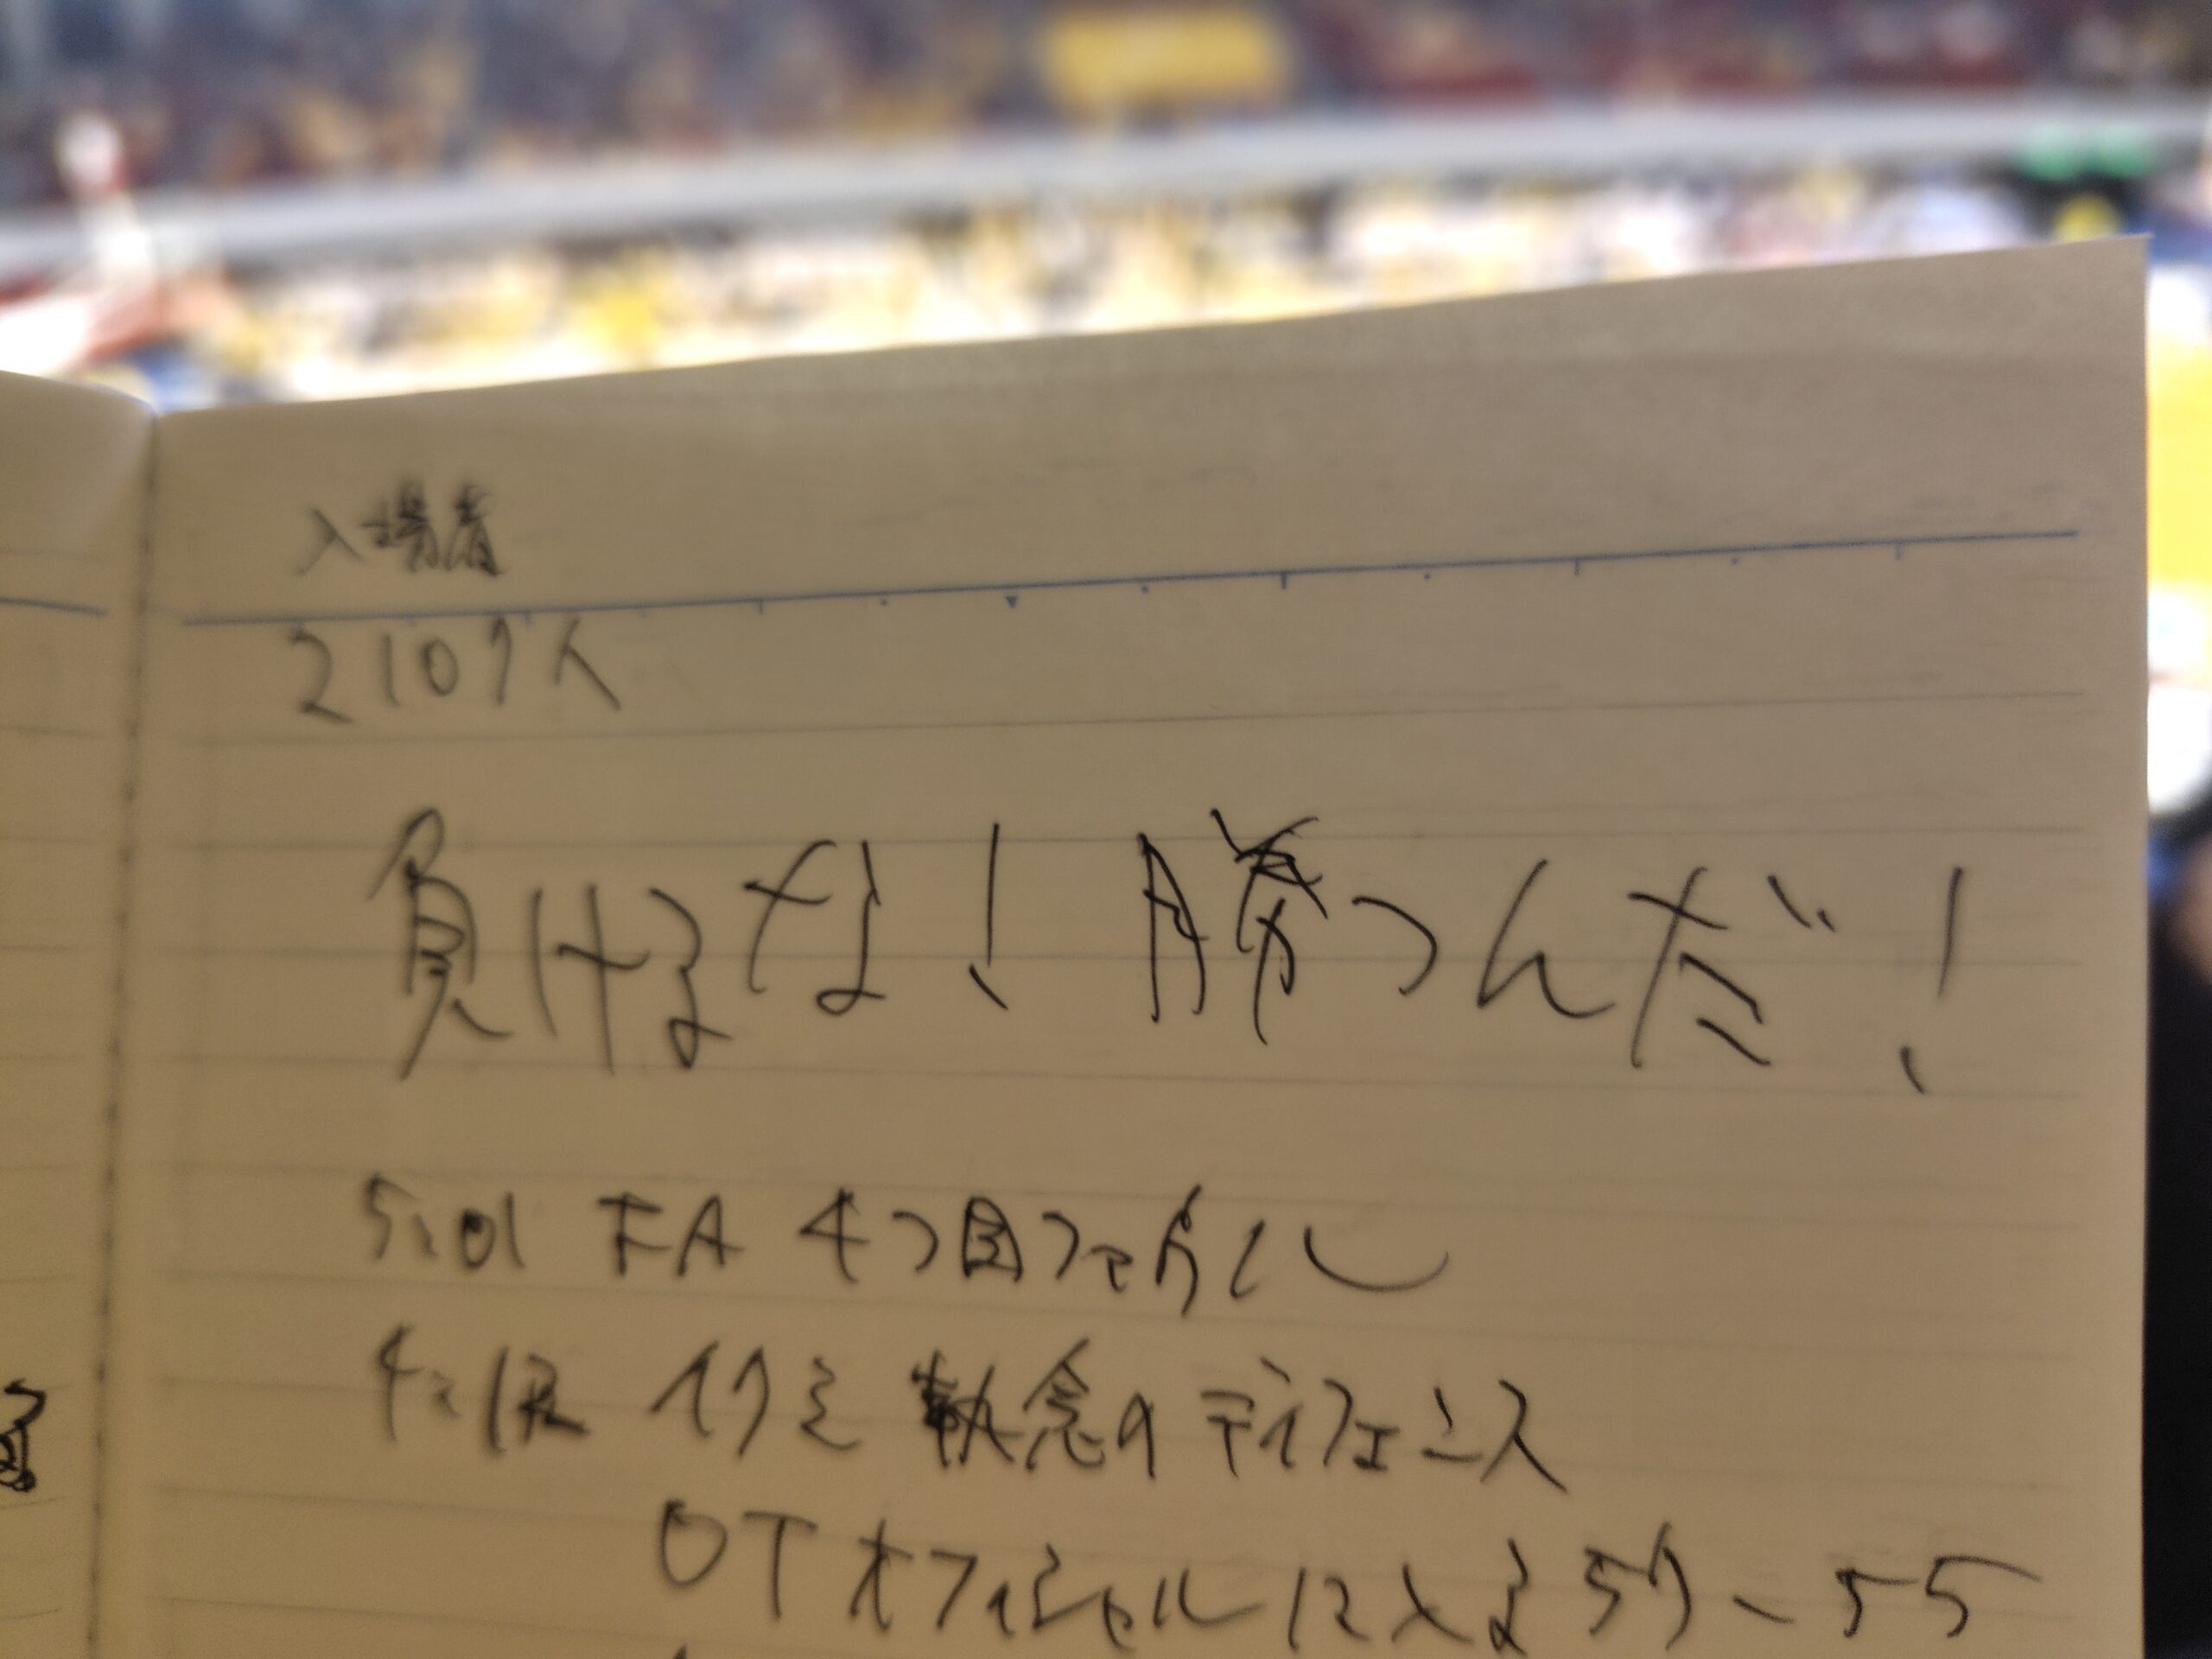 入場者
2107人
負けるな！ 勝つんだ！
5:01 FA 4つ目ファウル
イクミ 執念のディフェンス
OT オフィシャルに入る 57-55